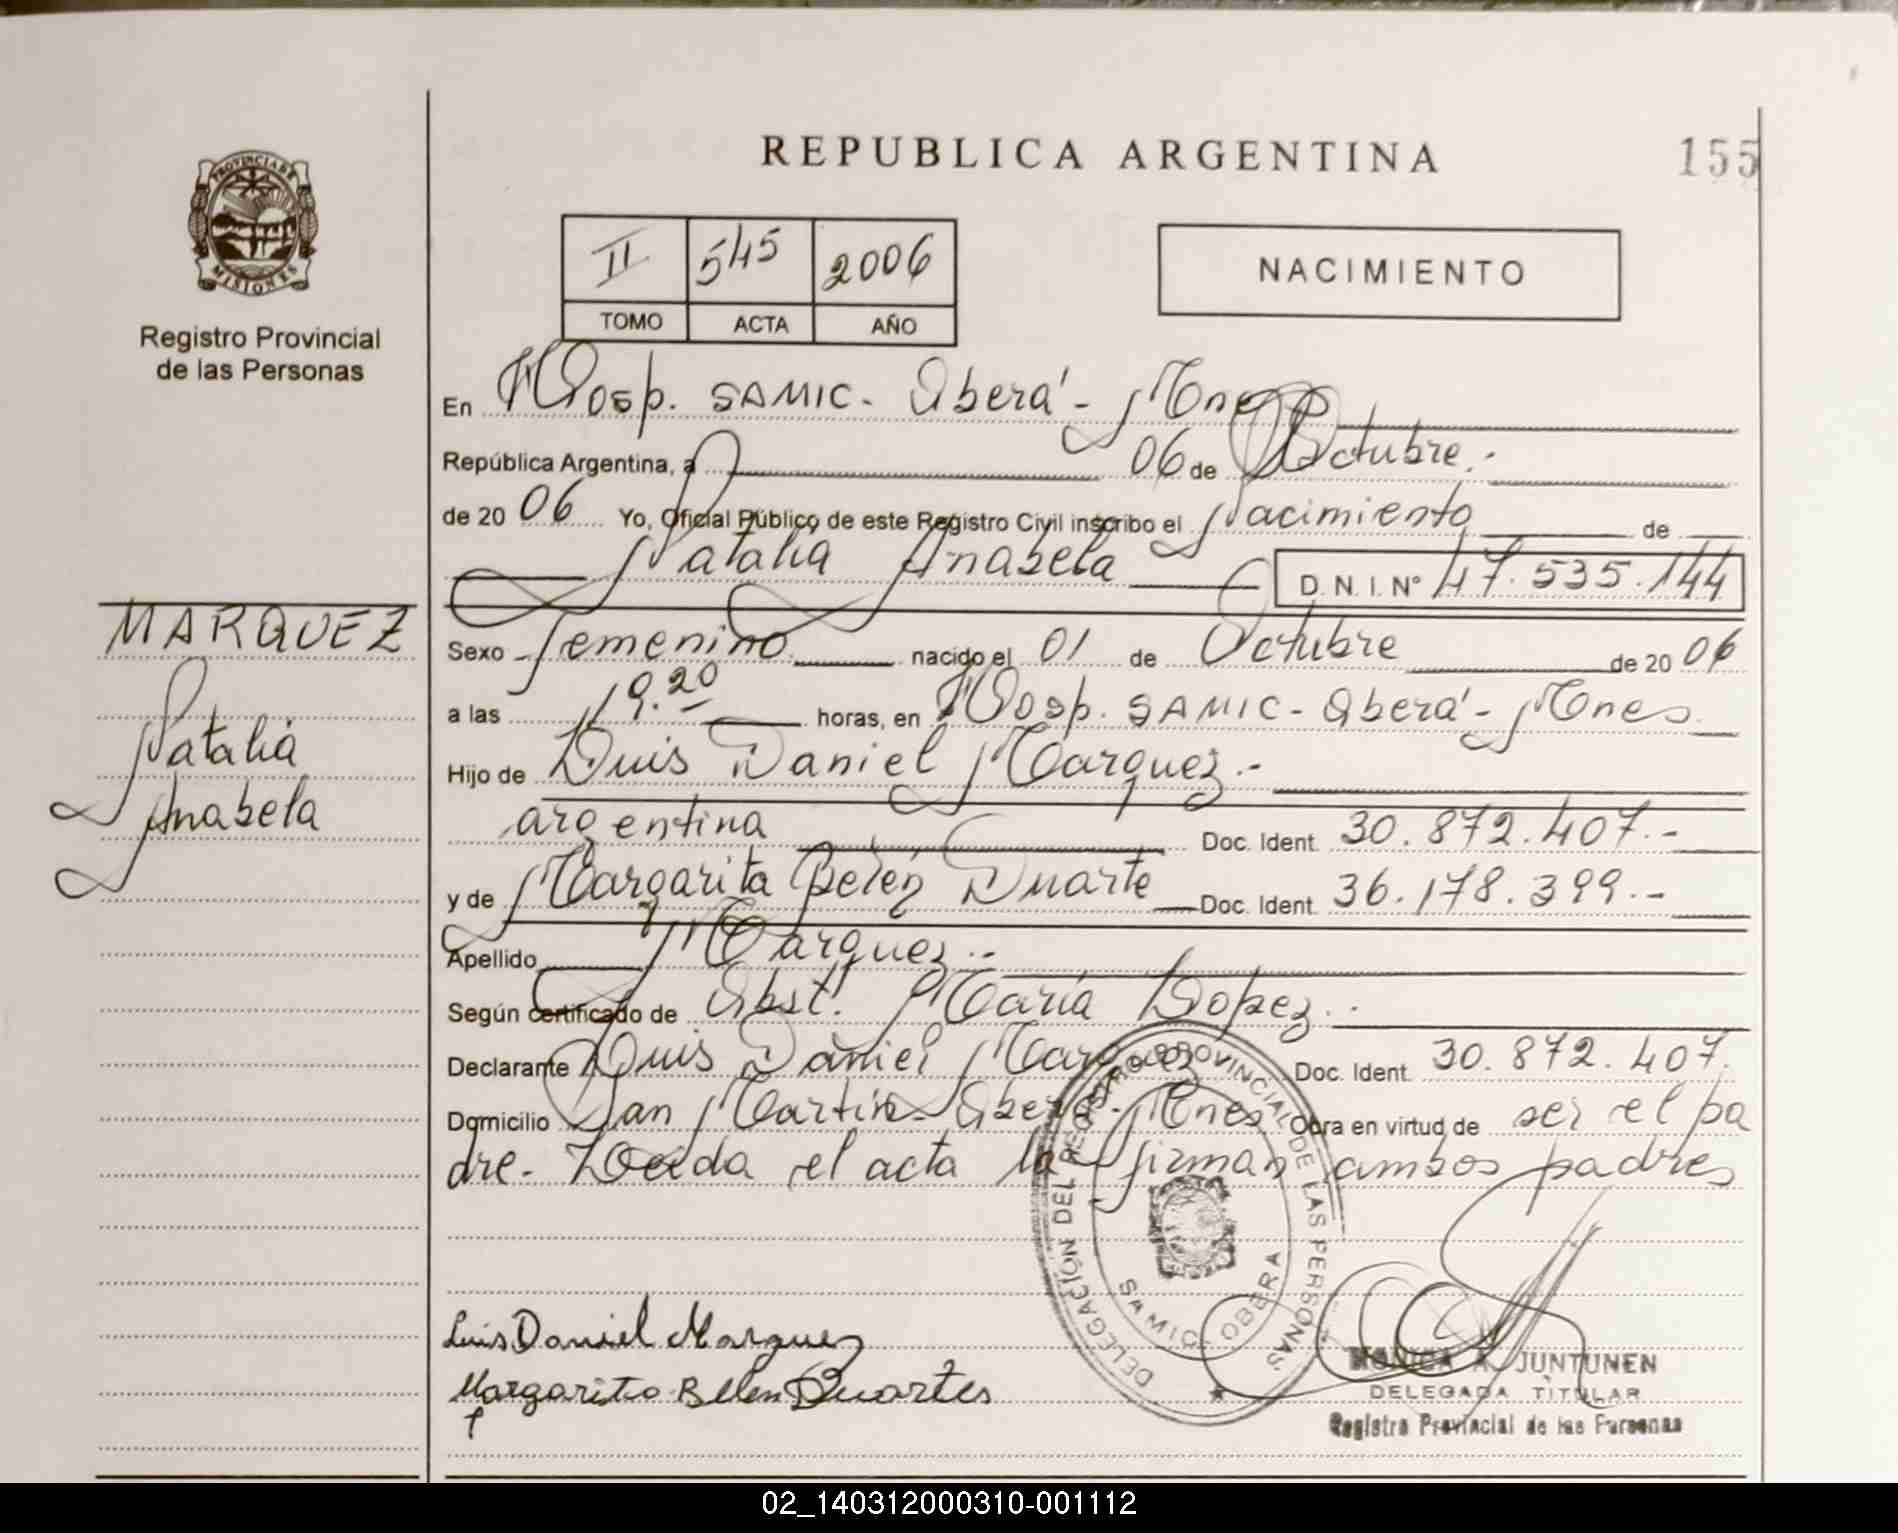 REPUBLICA ARGENTINA
155
PROVINCIA DE
MISIONES
Registro Provincial
de las Personas
II 545 2006
TOMO ACTA AÑO
NACIMIENTO
En Hosp. SAMIC - Oberá - Mnes
República Argentina, a 06 de Octubre.-
de 2006 Yo, Oficial Público de este Registro Civil inscribo el Nacimiento de
Natalia Anabela D.N.I. Nº 47.535.144
MARQUEZ
Natalia
Anabela
Sexo femenino nacido el 01 de Octubre de 2006
a las 19.20 horas, en Hosp. SAMIC - Oberá - Mnes
Hijo de Luis Daniel Marquez.-
argentina Doc. Ident. 30.872.407.-
y de Margarita Belén Duarte Doc. Ident. 36.178.399.-
Apellido Marquez.-
Según certificado de Obst. María Lopez.-
Declarante Luis Daniel Marquez Doc. Ident. 30.872.407.
Domicilio San Martín - Oberá - Mnes Obra en virtud de ser el pa
dre. Leída el acta la firman ambos padres
DELEGACIÓN DEL REGISTRO PROVINCIAL DE LAS PERSONAS
SAMIC - OBERA
Luis Daniel Marquez
Margarita Belen Duartes
MONICA A. JUNTUNEN
DELEGADA TITULAR
Registro Provincial de las Personas
02_140312000310-001112